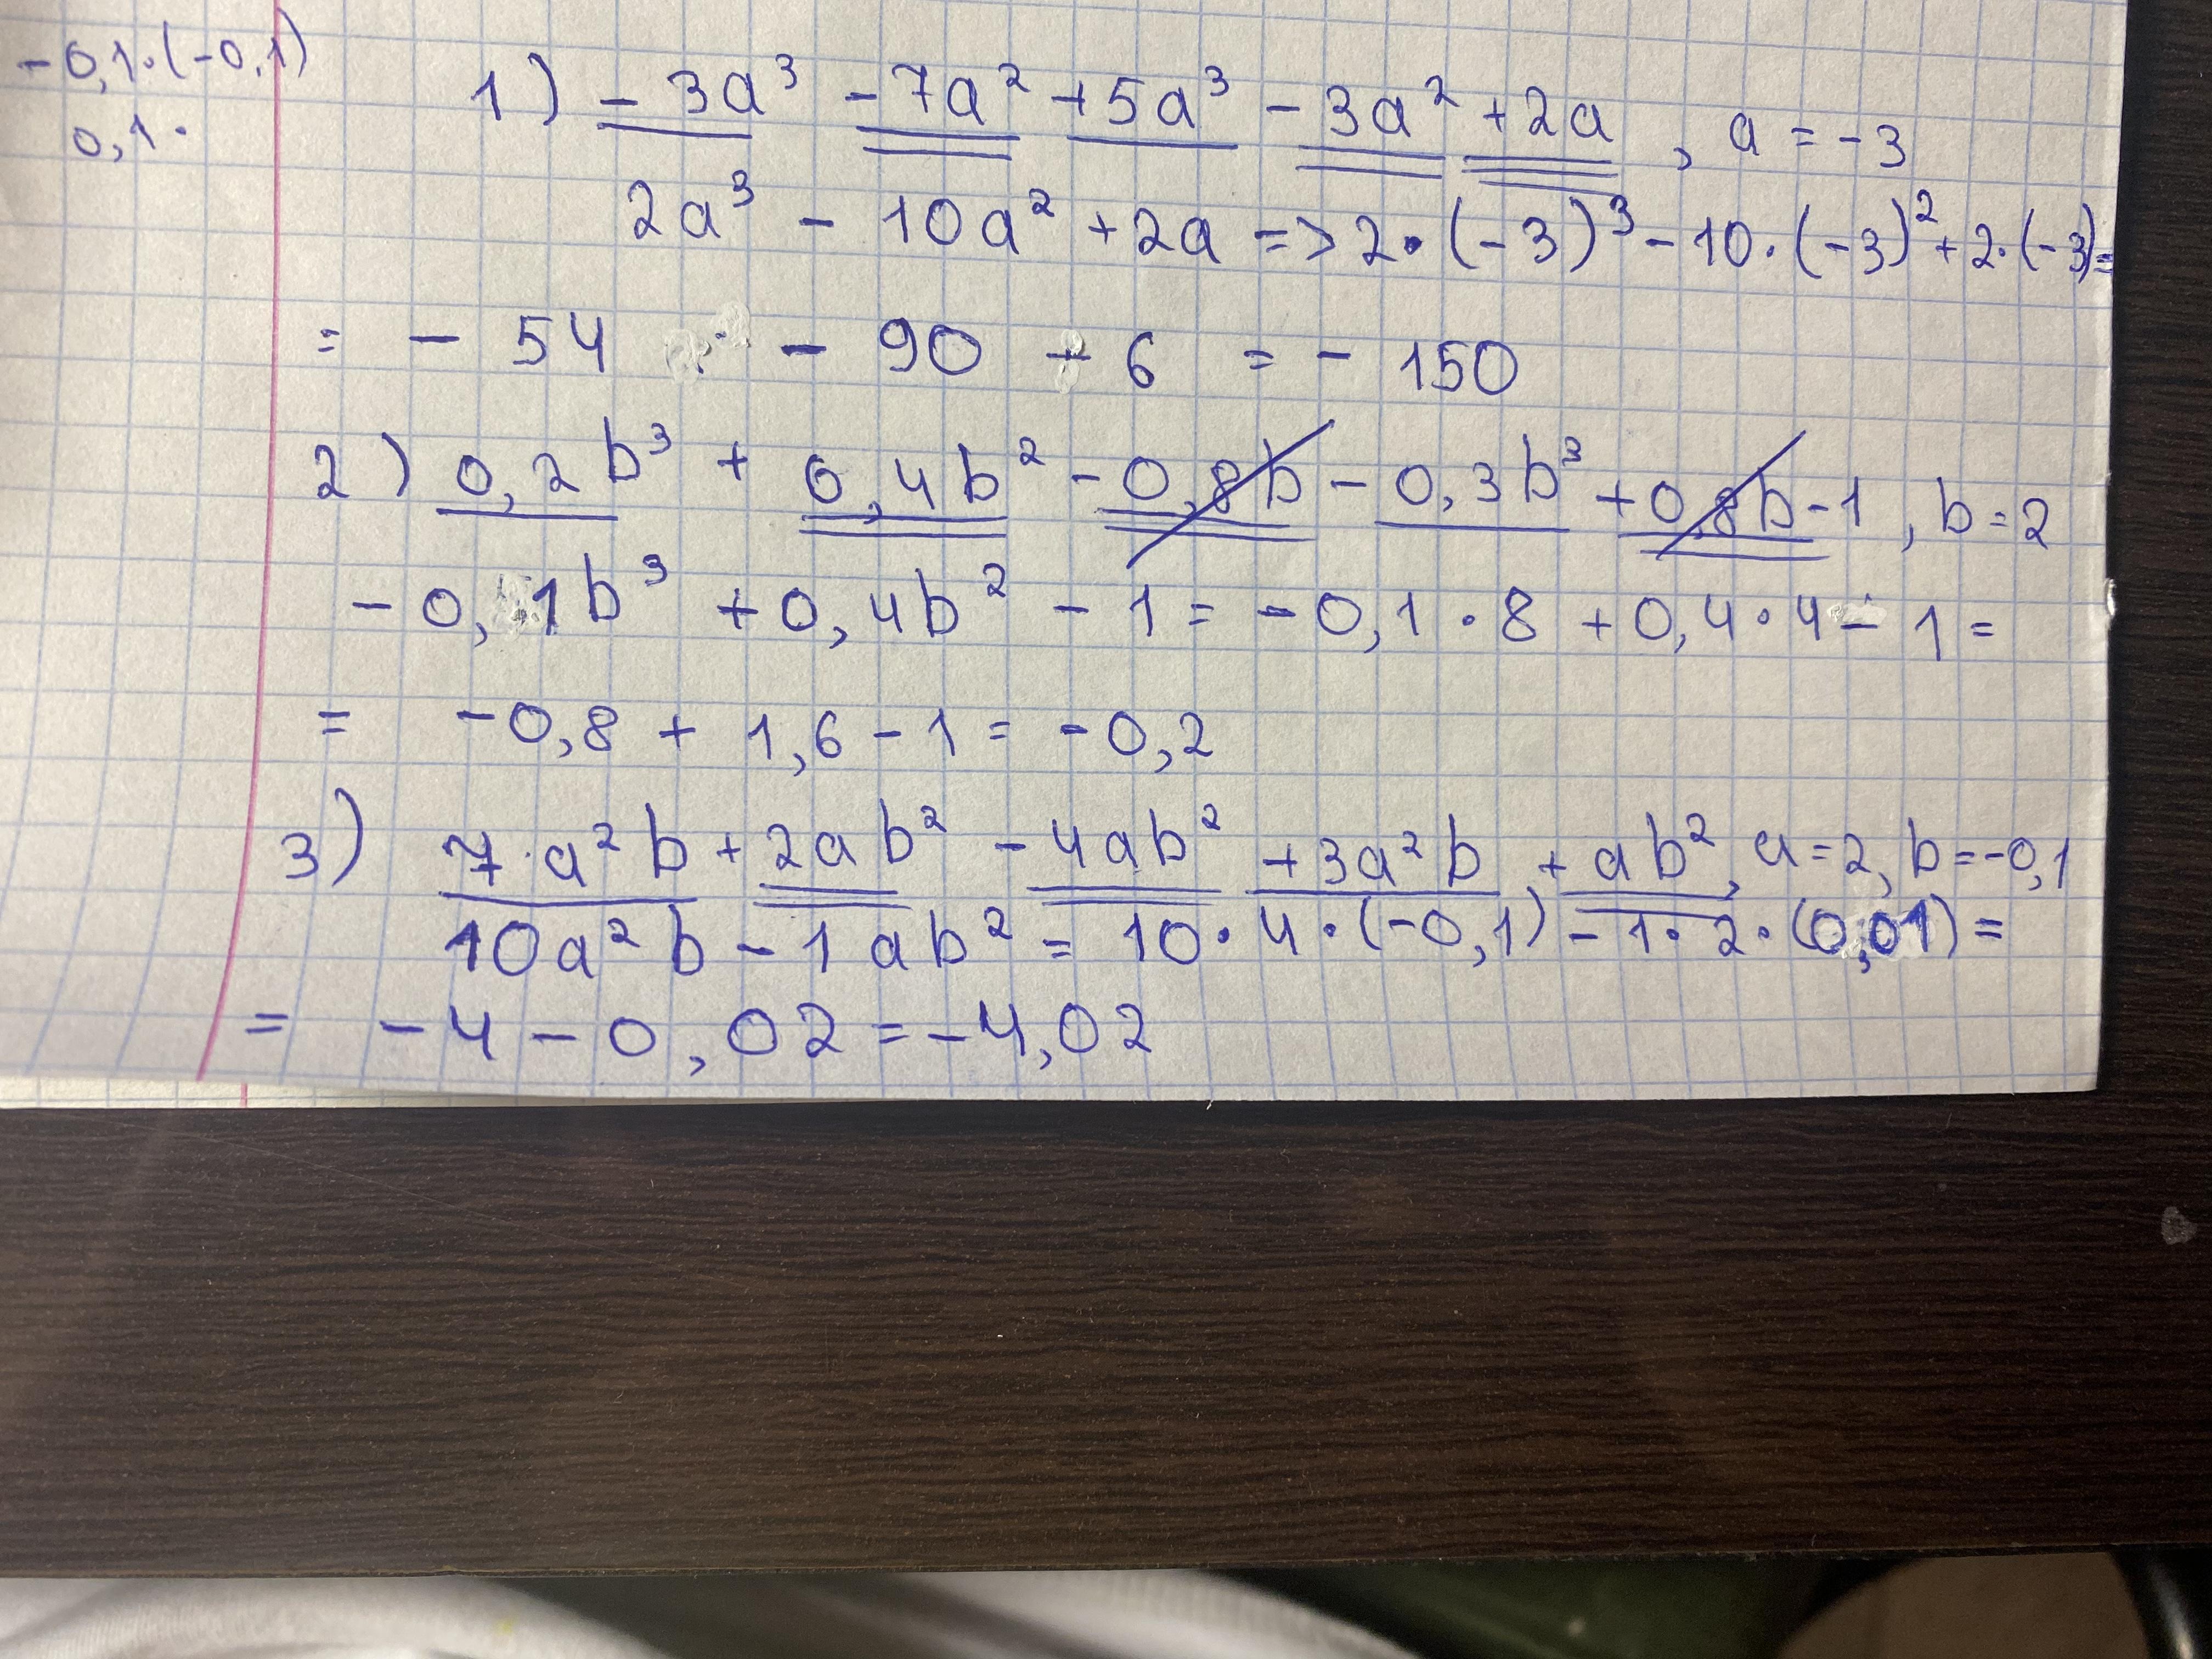 -0,1·(-0,1)
0,1·
1) -3a³ -7a² +5a³ -3a² +2a , a = -3
2a³ - 10a² +2a => 2·(-3)³ - 10·(-3)² + 2·(-3) =
= - 54 - 90 - 6 = - 150
2) 0,2b³ + 0,4b² - 0,8b - 0,3b³ + 0,8b - 1 , b = 2
- 0,1b³ + 0,4b² - 1 = - 0,1 · 8 + 0,4 · 4 - 1 =
= -0,8 + 1,6 - 1 = -0,2
3) 7·a²b + 2ab² - 4ab² + 3a²b + ab², a = 2, b = -0,1
10a²b - 1ab² = 10·4·(-0,1) - 1·2·(0,01) =
= -4 - 0,02 = -4,02